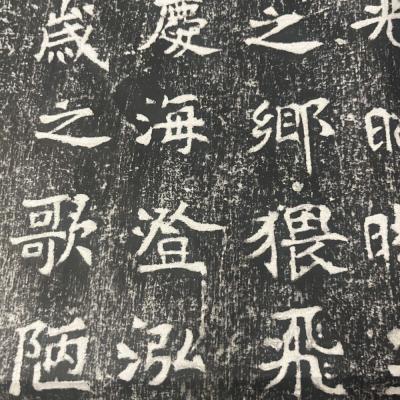 之鄉猥飛
慶海澄泓
歲之歌陋